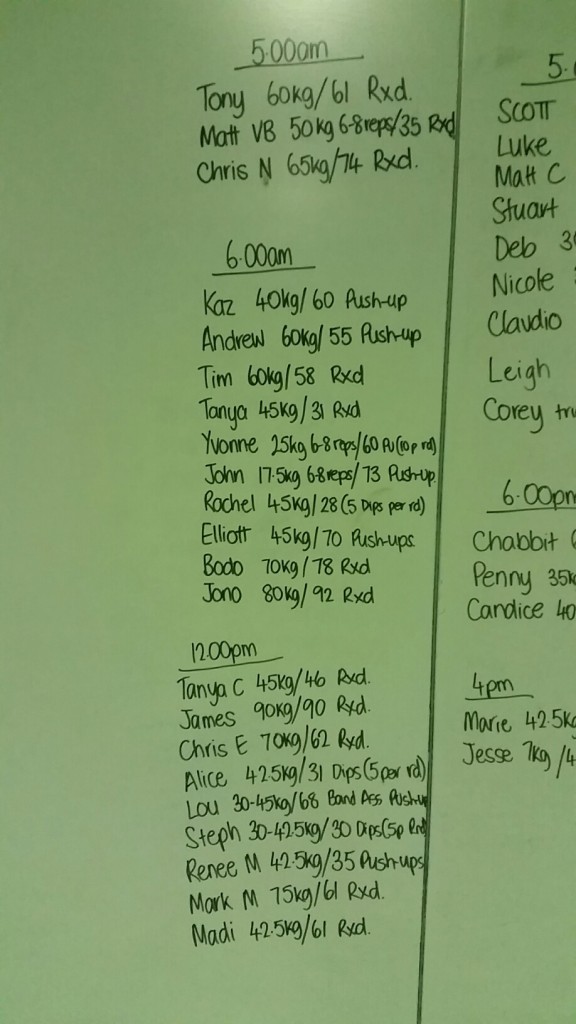 5:00am
Tony 60kg/61 Rxd.
Matt VB 50kg 6-8reps/35 Rxd
Chris N 65kg/74 Rxd.
6:00am
Kaz 40kg/60 Push-up
Andrew 60kg/55 Push-up
Tim 60kg/58 Rxd
Tanya 45kg/31 Rxd
Yvonne 25kg 6-8reps/60 Pu(10p rd)
John 17.5kg 6-8reps/73 Push-up
Rachel 45kg/28 (5 Dips per rd)
Elliott 45kg/70 Push-ups
Bodo 70kg/78 Rxd
Jono 80kg/92 Rxd
12:00pm
Tanya C 45kg/46 Rxd.
James 90kg/90 Rxd.
Chris E 70kg/62 Rxd.
Alice 42.5kg/31 Dips(5 per rd)
Lou 30-45kg/68 Band Ass Push-up
Steph 30-42.5kg/30 Dips(5p Rnd)
Renee M 42.5kg/35 Push-ups
Mark M 75kg/61 Rxd.
Madi 42.5kg/61 Rxd.
5:
Scott
Luke
Matt C
Stuart
Deb
Nicole
Claudio
Leigh
Corey
6:00pm
Chabbit
Penny 35k
Candice 40
4pm
Marie 42.5kg
Jesse 7kg/4